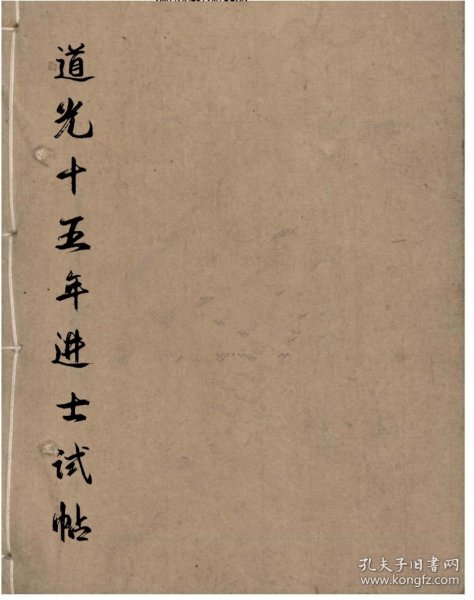 道光十五年进士试帖
孔夫子旧书网
www.kongfz.com